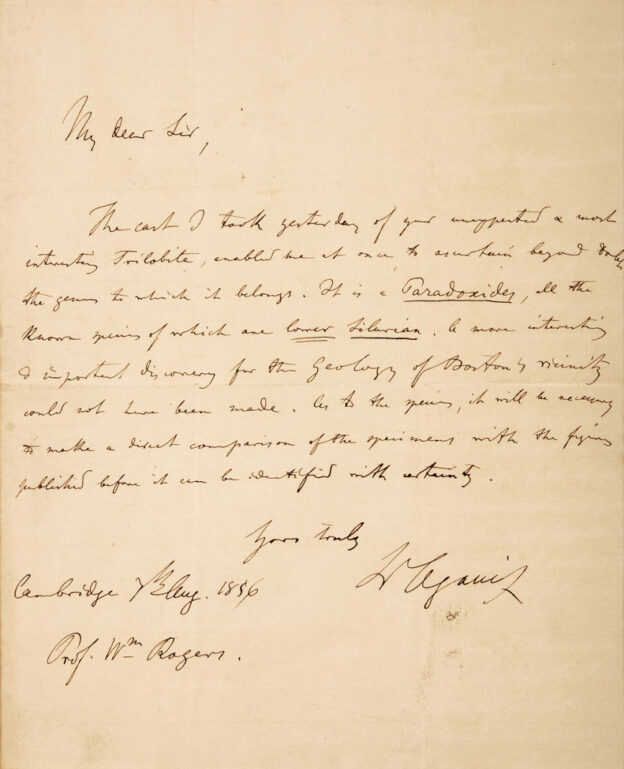 My dear Sir,
The cast I took yesterday of your unexpected & most
interesting Trilobite, enabled me at once, to ascertain beyond doubt
the genus to which it belongs. It is a Paradoxides, all the
known species of which are lower Silurian. A more interesting
& important discovery for the Geology of Boston's vicinity
could not have been made. As to the species, it will be necessary
to make a direct comparison of the specimens with the figures
published before it can be identified with certainty.
Yours truly
Ls Agassiz
Cambridge 7th Aug. 1856
Prof. Wm Rogers.